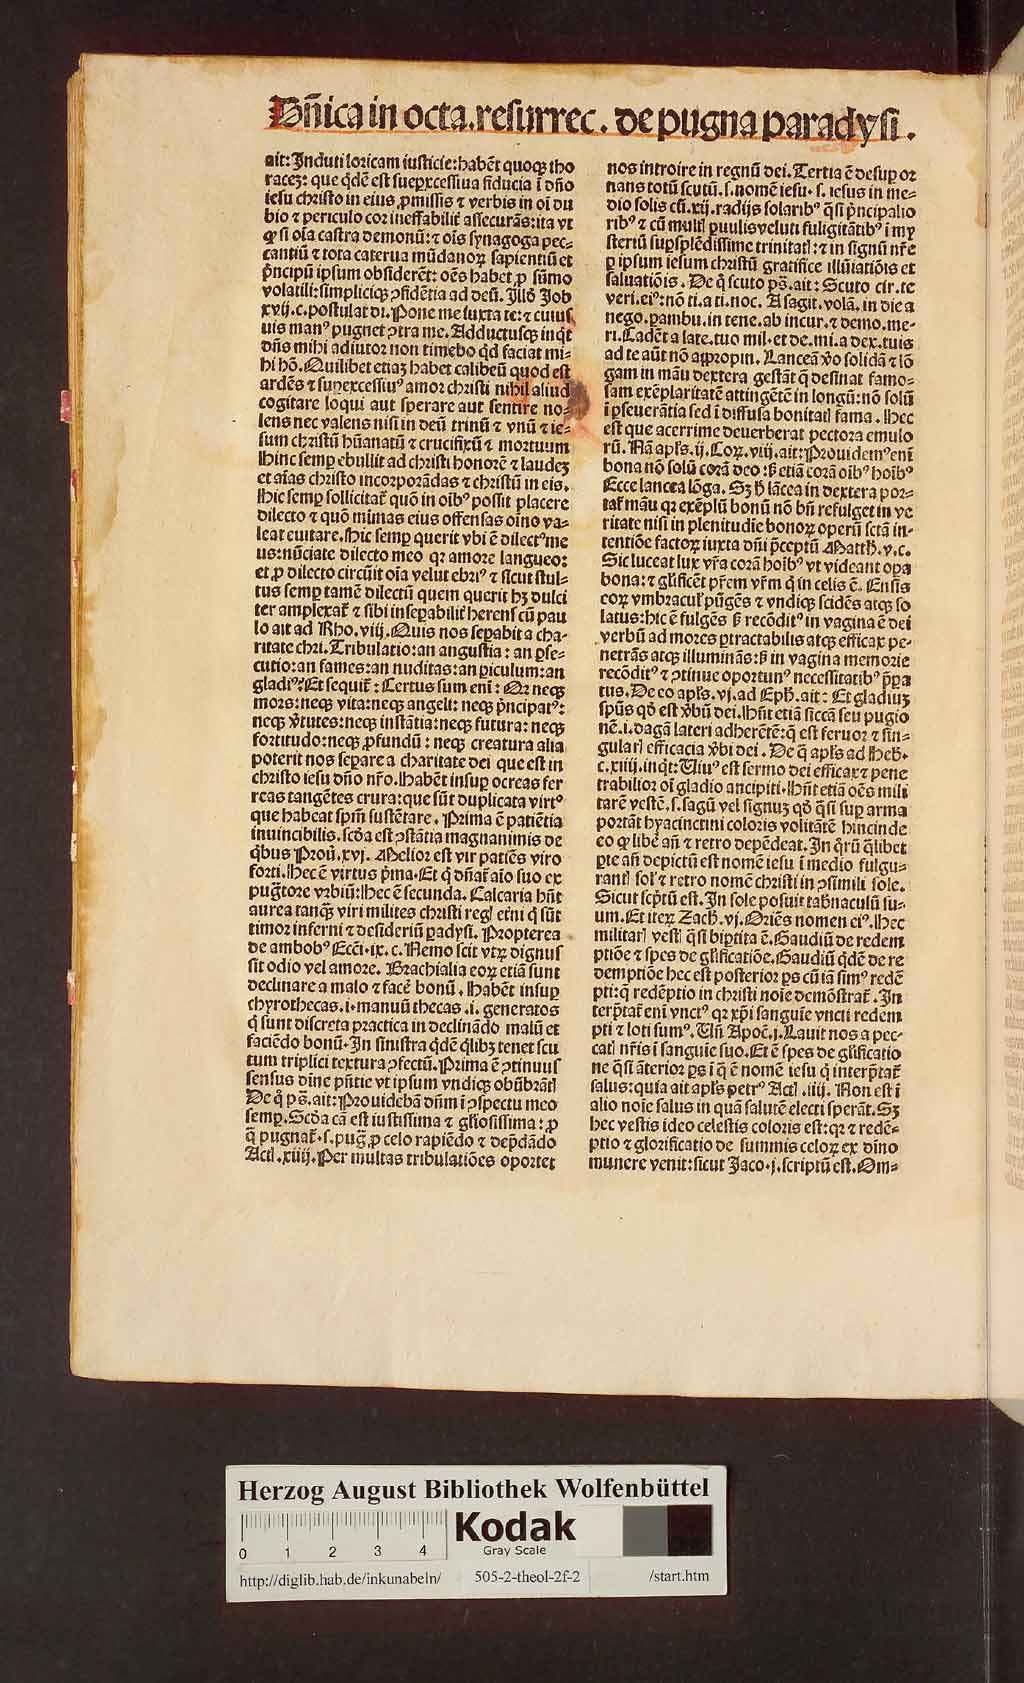 Dñica in octa.resurrec. de pugna paradysi.
ait: Induti loricam iusticie: habẽt quoqꝫ tho
raceꝫ: que q̃dẽ est suꝑexcessiua fiducia ĩ dño
iesu christo in eius ꝓmissis ⁊ verbis in oĩ du
bio ⁊ periculo cor ineffabiliť assecurãs: ita vt
ꝙ si oĩa castra demonũ: ⁊ oĩs synagoga pec⸗
cantiũ ⁊ tota caterua mũdanoꝝ sapientiũ et
pͥncipũ ipsum obsiderẽt: oẽs habet ꝓ sũmo
volatili: simplicíqꝫ ꝯfidẽtia ad deũ. Illð Job
xvij.c. postulat dĩ. Pone me iuxta te: ⁊ cuius
uis manꝰ pugnet ꝯtra me. Adductusqꝫ inq̃t
dñs mihi adiutor non timebo qd̃ faciat mi⸗
hi hõ. Quilibet etiaꝫ habet calibeũ quod est
ardẽs ⁊ suꝑexcessiuꝰ amor christi nihil aliud
cogitare loqui aut sperare aut sentire no⸗
lens nec valens nisi in deũ trinũ ⁊ vnũ ⁊ ie⸗
sum christũ hũanatũ ⁊ crucifixũ ⁊ mortuum
Hinc semꝑ ebullit ad christi honorẽ ⁊ laudeꝫ
et aĩas christo incorporãdas ⁊ christũ in eis.
Hic semꝑ sollicitať quõ in oĩbꝰ possit placere
dilecto ⁊ quõ minimas eius offensas oĩno va⸗
leat euitare. Hic semꝑ querit vbi ẽ dilectꝰ me
us: nũciate dilecto meo qꝛ amore langueo:
et ꝓ dilecto circũit oĩa velut ebriꝰ ⁊ sicut stul⸗
tus semꝑ tamẽ dilectũ quem querit hꝫ dulci
ter amplexať ⁊ sibi inseꝑabiliť herens cũ pau
lo ait ad Rho. viij. Quis nos seꝑabit a cha⸗
ritate chri. Tribulatio: an angustia: an ꝑse⸗
cutio: an fames: an nuditas: an ꝑiculum: an
gladiꝰ? Et sequiť: Certus sum enĩ: Qꝛ neqꝫ
mors: neqꝫ vita: neqꝫ angeli: neqꝫ pͥncipatꝰ:
neqꝫ v̾tutes: neqꝫ instãtia: neqꝫ futura: neqꝫ
fortitudo: neqꝫ ꝓfundũ: neqꝫ creatura alia
poterit nos seꝑare a charitate dei que est in
christo iesu dño nr̃o. Habẽt insuꝑ ocreas fer
reas tangẽtes crura: que sũt duplicata virtꝰ
que habeat spm̃ sustẽtare. Prima ẽ patiẽtia
inuincibilis. scðа est ꝯstãtia magnanimis de
q̃bus Proũ.xvj. Melior est vir patiẽs viro
forti. Hec ẽ virtus pͥma. Et q̃ dñať aĩo suo ex
pugͣtore vrbiũ: Hec ẽ secunda. Calcaria hñt
aurea tanqꝫ viri milites christi regꝭ etni q̃ sũt
timor inferni ⁊ desideriũ ꝑadysi. Propterea
de ambobꝰ Ecci.ix.c. Nemo scit vtꝝ dignus
sit odio vel amore. Brachialia eoꝝ etiã sunt
declinare a malo ⁊ facẽ bonũ. Habẽt insuꝑ
chyrothecas.i.manuũ thecas.i.generatos
q̃ sunt discreta practica in declinãdo malũ et
faciẽdo bonũ. In sinistra q̃dẽ q̃libꝫ tenet scu
tum triplici textura ꝯfectũ. Prima ẽ ꝯtinuus
sensus diñe pñtie vt ipsum vndiqꝫ obũbrãtꝭ
De q̃ ps̃.ait: Prouidebã dñm ĩ ꝯspectu meo
semꝑ. Scðа cã est iustissima ⁊ gl̃iosissima: ꝓ
q̃ pugnať.s.pugͣ ꝓ celo rapiẽdo ⁊ dep̃dãdo
Actꝭ.xiiij. Per multas tribulatiões oportet
nos introire in regnũ dei. Tertia ẽ desuꝑ or
nans totũ scutũ.s.nomẽ iesu.s.iesus in me⸗
dio solis cũ.xij.radijs solaribꝰ q̃si pͥncipalio
ribꝰ ⁊ cũ multꝭ ꝑuulis veluti fuligitãtibꝰ ĩ my
steriũ suꝑsplẽdissime trinitatꝭ: ⁊ in signũ nr̃e
ꝑ ipsum iesum christũ gratifice illũiatiõis et
saluatiõis. De q̃ scuto ps̃.ait: Scuto cir.te
veri.eiꝰ: nõ ti.a ti.noc. A sagit.volã.in die a
nego.ꝑambu.in tene.ab incur.⁊ demo.me⸗
ri. Cadẽt a late.tuo mil.et de.mi.a dex.tuis
ad te aũt nõ apropin. Lanceã v̾o solidã ⁊ lõ
gam in mãu dextera gestãt q̃ desinat famo⸗
sam exẽplaritatẽ attingẽtẽ in longũ: nõ solũ
ĩ ꝑseuerãtia sed ĩ diffusa bonitatꝭ fama. Hec
est que acerrime deuerberat pectora emulo
rũ. Nã apls̃.ij.Coꝝ.viij.ait: Prouidemꝰ enĩ
bona nõ solũ corã deo: ß etiã corã oĩbꝰ hoĩbꝰ
Ecce lancea lõga. Sꝫ h̃ lãcea in dextera por⸗
tať mãu qꝛ exẽplũ bonũ nõ bñ refulget in ve
ritate nisi in plenitudĩe bonoꝝ operũ sctã in⸗
tentiõe factoꝝ iuxta dñi p̃ceptũ Matth̃.v.c.
Sic luceat lux vr̃a corã hoĩbꝰ vt videant oꝑa
bona: ⁊ gl̃ificẽt pr̃em vr̃m q̃ in celis ẽ. Ensis
eoꝝ vmbraculꝭ pũgẽs ⁊ vndiqꝫ scidẽs atqꝫ so
latus: hic ẽ fulgẽs ß recõditꝰ in vagina ẽ dei
verbũ ad mores ꝑtractabilis atqꝫ efficax pe⸗
netrãs atqꝫ illuminãs: ß in vagina memorie
recõditꝰ ⁊ ꝯtinue oportunꝰ necessitatibꝰ p̃ꝑa
tus. De eo apls̃.vj.ad Eph̃.ait: Et gladiuꝫ
spũs qð est v̾bũ dei. Hñt etiã siccã seu pugio
nẽ.i.dagã lateri adherẽtẽ: q̃ est feruor ⁊ sin⸗
gularꝭ efficacia v̾bi dei. De q̃ apls̃ ad Heb̃.
c.xiiij.inq̃t: Uiuꝰ est sermo dei efficax ⁊ pene
trabilior oĩ gladio ancipiti. Hñt etiã oẽs mili
tarẽ vestẽ.s.sagũ vel signuꝫ qð q̃si suꝑ arma
portãt hyacinctini coloris volitãtẽ hincinde
eo ꝙ liberͤ añ ⁊ retro depẽdeat. In q̃rũ q̃libet
ꝑte añ depictũ est nomẽ iesu ĩ medio fulgu⸗
rantꝭ solꝭ ⁊ retro nomẽ christi in ꝯsimili sole.
Sicut scͥptũ est. In sole posuit tab̾naculũ su⸗
um. Et iteꝝ Zach̃.vj. Oriẽs nomen eiꝰ. Hec
militarꝭ vestꝭ q̃si biꝑtita ẽ. Gaudiũ de redem
ptiõe ⁊ spes de gl̃ificatiõe. Gaudiũ q̃dẽ de re
demptiõe hec est posterior ꝑs cũ iã simꝰ redẽ
pti: q̃ redẽptio in christi noĩe demõstrať. In
terp̃tať enĩ vnctꝰ qꝛ xp̃i sanguĩe vncti redem
pti ⁊ loti sumꝰ. Uñ Apoc̃.j. Lauit nos a pec⸗
catꝭ nr̃is ĩ sanguĩe suo. Et ẽ spes de gl̃ificatio
ne q̃si ãterior ꝑs ĩ q̃ ẽ nomẽ iesu q̃ interp̃tať
salus: quia ait apls̃ petrꝰ Actꝭ.iiij. Non est ĩ
alio noĩe salus in quã salutẽ electi sperãt. Sꝫ
hec vestis ideo celestis coloris est: qꝛ ⁊ redẽ⸗
ptio ⁊ glorificatio de summis celoꝝ ex diño
munere venit: sicut Jaco.j. scriptũ est. Om⸗
Herzog August Bibliothek Wolfenbüttel
0 1 2 3 4
Kodak
Gray Scale
http://diglib.hab.de/inkunabeln/ 505-2-theol-2f-2 /start.htm